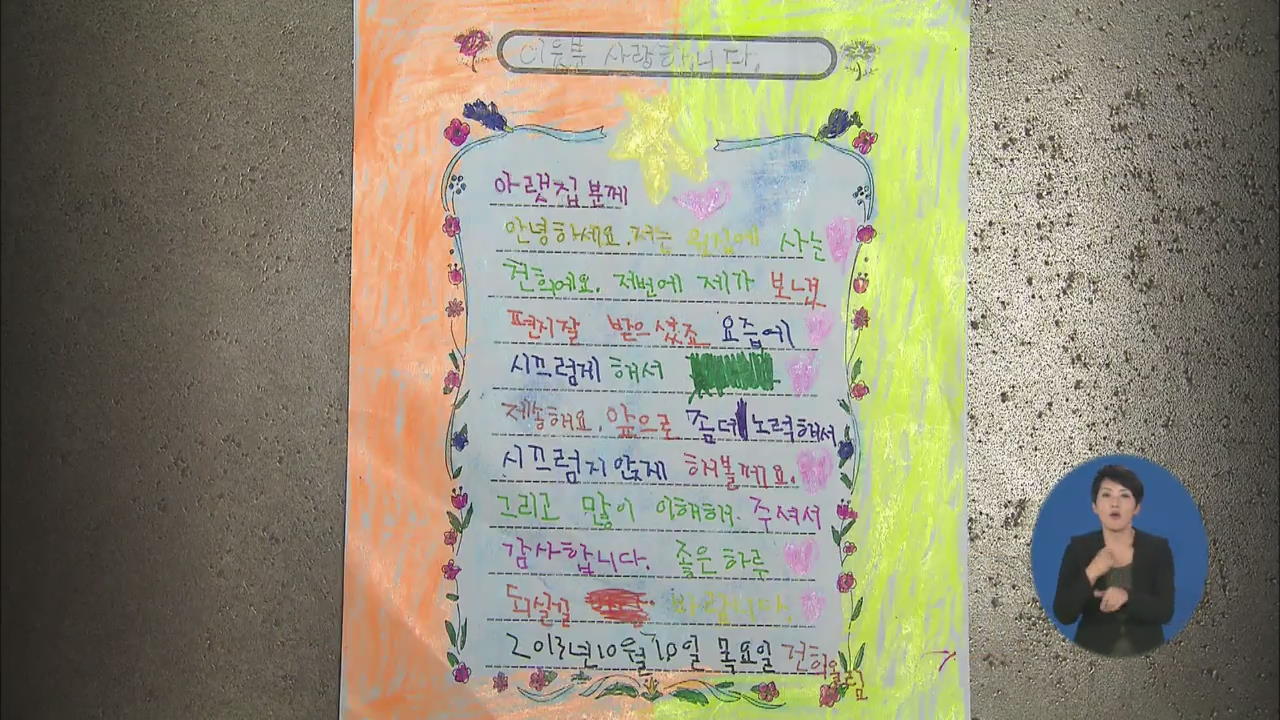 이웃분 사랑합니다.
아랫집분께
안녕하세요. 저는 윗집에 사는
건희에요. 저번에 제가 보낸
편지잘 받으셨죠 요즘에
시끄럽게 해서
제송해요. 앞으로 좀더 노력해서
시끄럽지안게 해볼께요.
그리고 많이 이해해 주셔서
감사합니다. 좋은하루
되실길 바랍니다.
2013년10월10일 목요일 건희올림